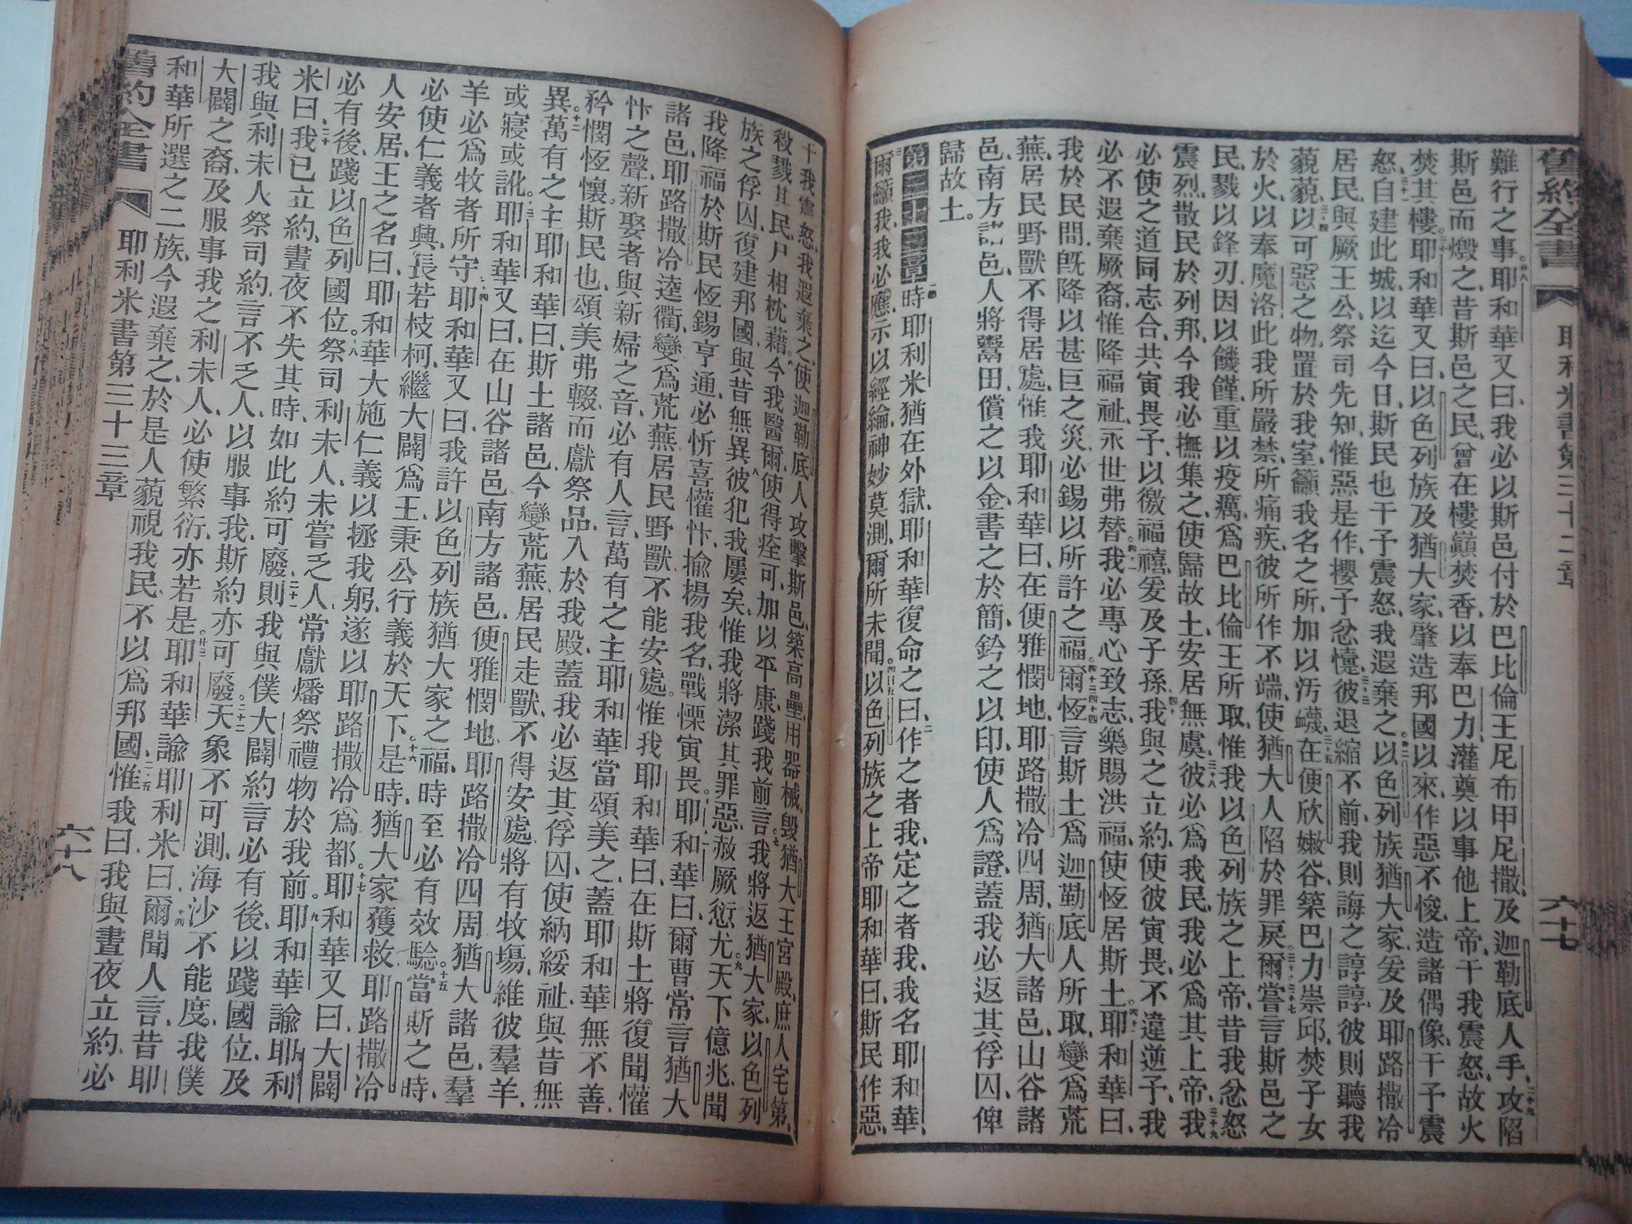 舊約全書 耶利米書第三十二章 六十七
難行之事、耶和華又曰、我必以斯邑付於巴比倫王尼布甲尼撒、及迦勒底人手、攻陷
斯邑而燬之、昔斯邑之民、曾在樓巔焚香、以奉巴力、灌奠以事他上帝、干我震怒、故火
焚其樓、耶和華又曰、以色列族、及猶大家、肇造邦國以來、作惡不悛、造諸偶像、干予震
怒、自建此城、以迄今日、斯民也、干予震怒、我遐棄之、以色列族、猶大家、爰及耶路撒冷
居民、與厥王公、祭司、先知、惟惡是作、攖予忿懥、彼退縮不前、我則誨之諄諄、彼則聽我
藐藐、以可惡之物、置於我室、籲我名之所、加以污衊、在便欣嫩谷、築巴力崇邱、焚子女
於火、以奉魔洛、此我所嚴禁、所痛疾、彼所作不端、使猶大人陷於罪戾、爾嘗言斯邑之
民、戮以鋒刃、因以饑饉、重以疫癘、爲巴比倫王所取、惟我以色列族之上帝、昔我忿怒
震烈、散民於列邦、今我必撫集之、使歸故土、安居無虞、彼必爲我民、我必爲其上帝、我
必使之道同志合、共寅畏予、以徼福禧、爰及子孫、我與之立約、使彼寅畏、不違逆予、我
必不遐棄厥裔、惟降福祉、永世弗替、我必專心致志、樂賜洪福、使恆居斯土、耶和華曰、
我於民間、旣降以甚巨之災、必錫以所許之福、爾恆言斯土爲迦勒底人所取、變爲荒
蕪、居民野獸不得居處、惟我耶和華曰、在便雅憫地、耶路撒冷四周、猶大諸邑、山谷諸
邑、南方諸邑、人將鬻田、償之以金、書之於簡、鈐之以印、使人爲證、蓋我必返其俘囚、俾
歸故土。
第三十三章 時耶利米猶在外獄、耶和華復命之曰、作之者我、定之者我、我名耶和華、
爾籲我、我必應、示以經綸神妙莫測、爾所未聞、以色列族之上帝耶和華曰、斯民作惡、
干我震怒、我遐棄之、使迦勒底人攻擊斯邑、築高壘、用器械、毀猶大王宮殿、庶人宅第、
殺戮其民、尸相枕藉、今我醫爾、使得痊可、加以平康、踐我前言、我將返猶大家、以色列
族之俘囚、復建邦國、與昔無異、彼犯我屢矣、惟我將潔其罪惡、赦厥愆尤、天下億兆、聞
我降福於斯民、恆錫亨通、必忻喜懽忭、揄揚我名、戰慄寅畏、耶和華曰、爾曹常言猶大
諸邑、耶路撒冷逵衢、變爲荒蕪、居民野獸不能安處、惟我耶和華曰、在斯土將復聞懽
忭之聲、新娶者與新婦之音、必有人言、萬有之主耶和華當頌美之、蓋耶和華無不善、
矜憫恆懷、斯民也、頌美弗輟、而獻祭品、入於我殿、蓋我必返其俘囚、使納綏祉、與昔無
異、萬有之主耶和華曰、斯土諸邑、今變荒蕪、居民走獸、不得安處、將有牧場、維彼羣羊、
或寢或訛、耶和華又曰、在山谷諸邑、南方諸邑、便雅憫地、耶路撒冷四周、猶大諸邑、羣
羊必爲牧者所守、耶和華又曰、我許以色列族猶大家之福、時至必有效驗、當斯之時、
必使仁義者興、長若枝柯、繼大闢爲王、秉公行義於天下、是時猶大家獲救、耶路撒冷
人安居、王之名曰、耶和華大施仁義、以拯我躬、遂以耶路撒冷爲都、耶和華又曰、大闢
必有後、踐以色列國位、祭司利未人、未嘗乏人、常獻燔祭禮物於我前、耶和華諭耶利
米曰、我已立約、晝夜不失其時、如此約可廢、則我與僕大闢約、言必有後、以踐國位、及
我與利未人祭司約、言不乏人、以服事我、斯約亦可廢、天象不可測、海沙不能度、我僕
大闢之裔、及服事我之利未人、必使繁衍、亦若是、耶和華諭耶利米曰、爾聞人言、昔耶
和華所選之二族、今遐棄之、於是人藐視我民、不以爲邦國、惟我曰、我與晝夜立約、必
舊約全書 耶利米書第三十三章 六十八